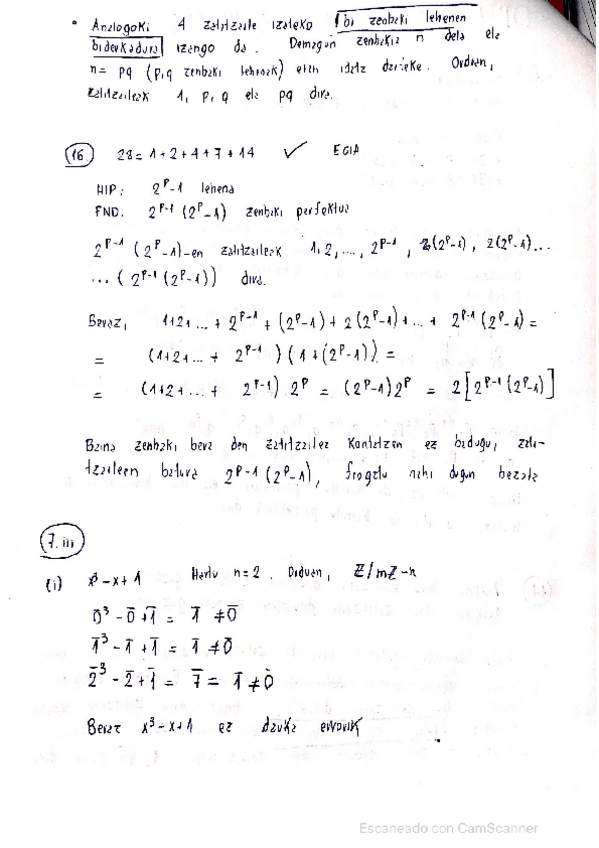 • Analogoki 4 zatitzaile izateko bi zenbaki lehenen
biderkadura izango da. Demagun zenbakia n dela eta
n = pq (p,q zenbaki lehenak) eran idatz daiteke. Orduan,
zatitzaileak 1, p, q eta pq dira.
16 28 = 1+2+4+7+14 ✓ EGIA
HIP: 2^p-1 lehena
FND: 2^(p-1) (2^p-1) zenbaki perfektua
2^(p-1) (2^p-1)-en zatitzaileak 1, 2, ..., 2^(p-1), (2^p-1), 2(2^p-1)...
...(2^(p-1) (2^p-1)) dira.
Beraz, 1+2+...+2^(p-1) + (2^p-1) + 2(2^p-1) + ... + 2^(p-1) (2^p-1) =
= (1+2+...+ 2^(p-1)) (1+(2^p-1)) =
= (1+2+...+ 2^(p-1)) 2^p = (2^p-1)2^p = 2[2^(p-1) (2^p-1)]
Baina zenbaki bera den zatitzailea kontatzen ez badugu, zati-
tzaileen batura 2^(p-1) (2^p-1), frogatu nahi dugun bezala
7.iii
(i) x³-x+1 Hartu n=2. Orduan, Z/mZ-n
0̄³ - 0̄ + 1̄ = 1̄ ≠ 0̄
1̄³ - 1̄ + 1̄ = 1̄ ≠ 0̄
2̄³ - 2̄ + 1̄ = 7̄ = 1̄ ≠ 0̄
Beraz x³-x+1 ez dauka errorik
Escaneado con CamScanner